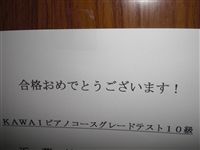 合格おめでとうございます！
ＫＡＷＡＩピアノコースグレードテスト１０級